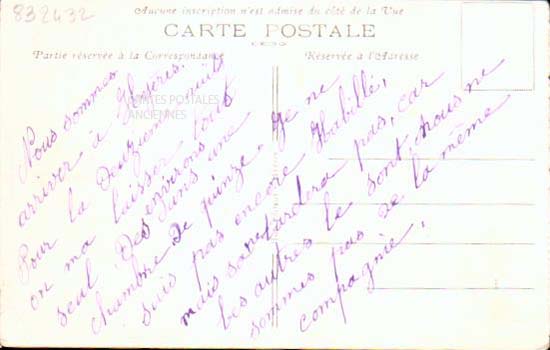 832432
Aucune inscription n'est admise du côté de la Vue
CARTE POSTALE
Partie réservée à la Correspondance
Réservée à l'Adresse
CARTES POSTALES
ANCIENNES
Nous sommes
arriver à Hyères.
Pour la Douzieme nuit
on ma laisser tout
seul Des environs
Dans une
chambre De quinze. Je ne
suis pas encore Habillé,
mais sa tardera pas, car
les autres le sont, nous ne
sommes pas De la même
compagnie.